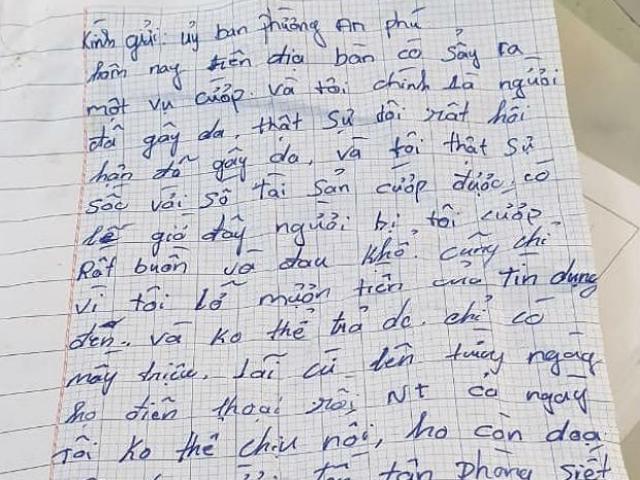 Kính gửi: uỷ ban Phường An phú
hôm nay trên địa bàn có sảy ra
một vụ cướp. và tôi chính là người
đã gây da, thật sự tôi rất hối
hận đã gây da, và tôi thật sự
sốc với số tài sản cướp được, có
lẽ giờ đây người bị tôi cướp
Rất buồn và đau khổ. cũng chỉ
vì tôi lỡ mượn tiền của Tín dụng
đen. và ko thể trả dc. chỉ có
mấy triệu. lãi cứ lên từng ngày
họ điện thoại rồi NT cả ngày
Tôi ko thể chịu nổi, họ còn doạ
tận phòng siết